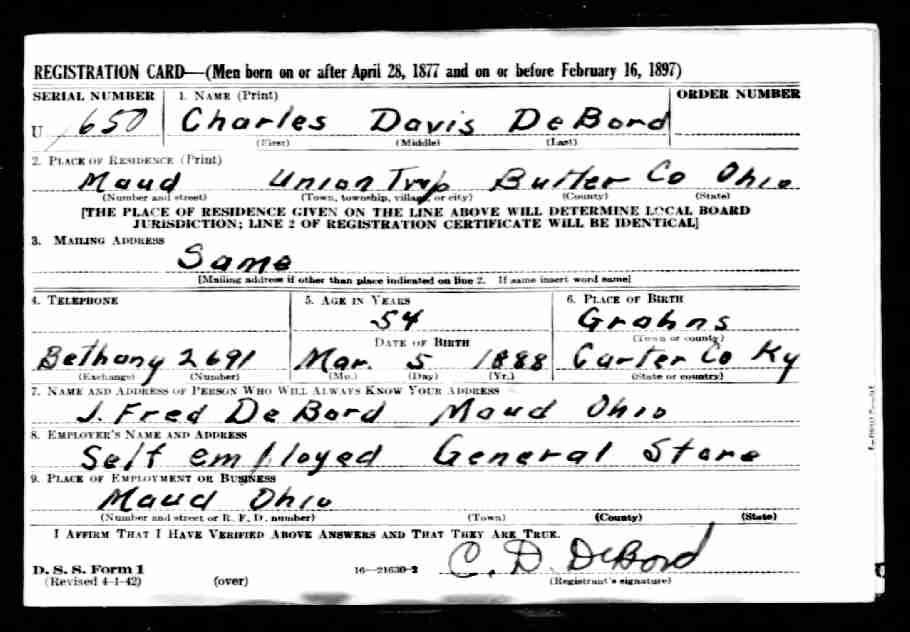 REGISTRATION CARD—(Men born on or after April 28, 1877 and on or before February 16, 1897)
SERIAL NUMBER 1. NAME (Print) ORDER NUMBER
U 1650 Charles Davis DeBord
(First) (Middle) (Last)
2. PLACE OF RESIDENCE (Print)
Maud Union Twp Butler Co Ohio
(Number and street) (Town, township, village, or city) (County) (State)
[THE PLACE OF RESIDENCE GIVEN ON THE LINE ABOVE WILL DETERMINE LOCAL BOARD
JURISDICTION; LINE 2 OF REGISTRATION CERTIFICATE WILL BE IDENTICAL]
3. MAILING ADDRESS
Same
[Mailing address if other than place indicated on line 2. If same insert word same]
4. TELEPHONE 5. AGE IN YEARS 6. PLACE OF BIRTH
54 Grahns
(Town or county)
DATE OF BIRTH
Bethany 2691 Mar. 5 1888 Carter Co Ky
(Exchange) (Number) (Mo.) (Day) (Yr.) (State or country)
7. NAME AND ADDRESS OF PERSON WHO WILL ALWAYS KNOW YOUR ADDRESS
J. Fred DeBord Maud Ohio
8. EMPLOYER'S NAME AND ADDRESS
Self employed General Store
9. PLACE OF EMPLOYMENT OR BUSINESS
Maud Ohio
(Number and street or R. F. D. number) (Town) (County) (State)
I AFFIRM THAT I HAVE VERIFIED ABOVE ANSWERS AND THAT THEY ARE TRUE.
D. S. S. Form 1
(Revised 4-1-42) (over) 16—21630-2 C. D. DeBord
(Registrant's signature)